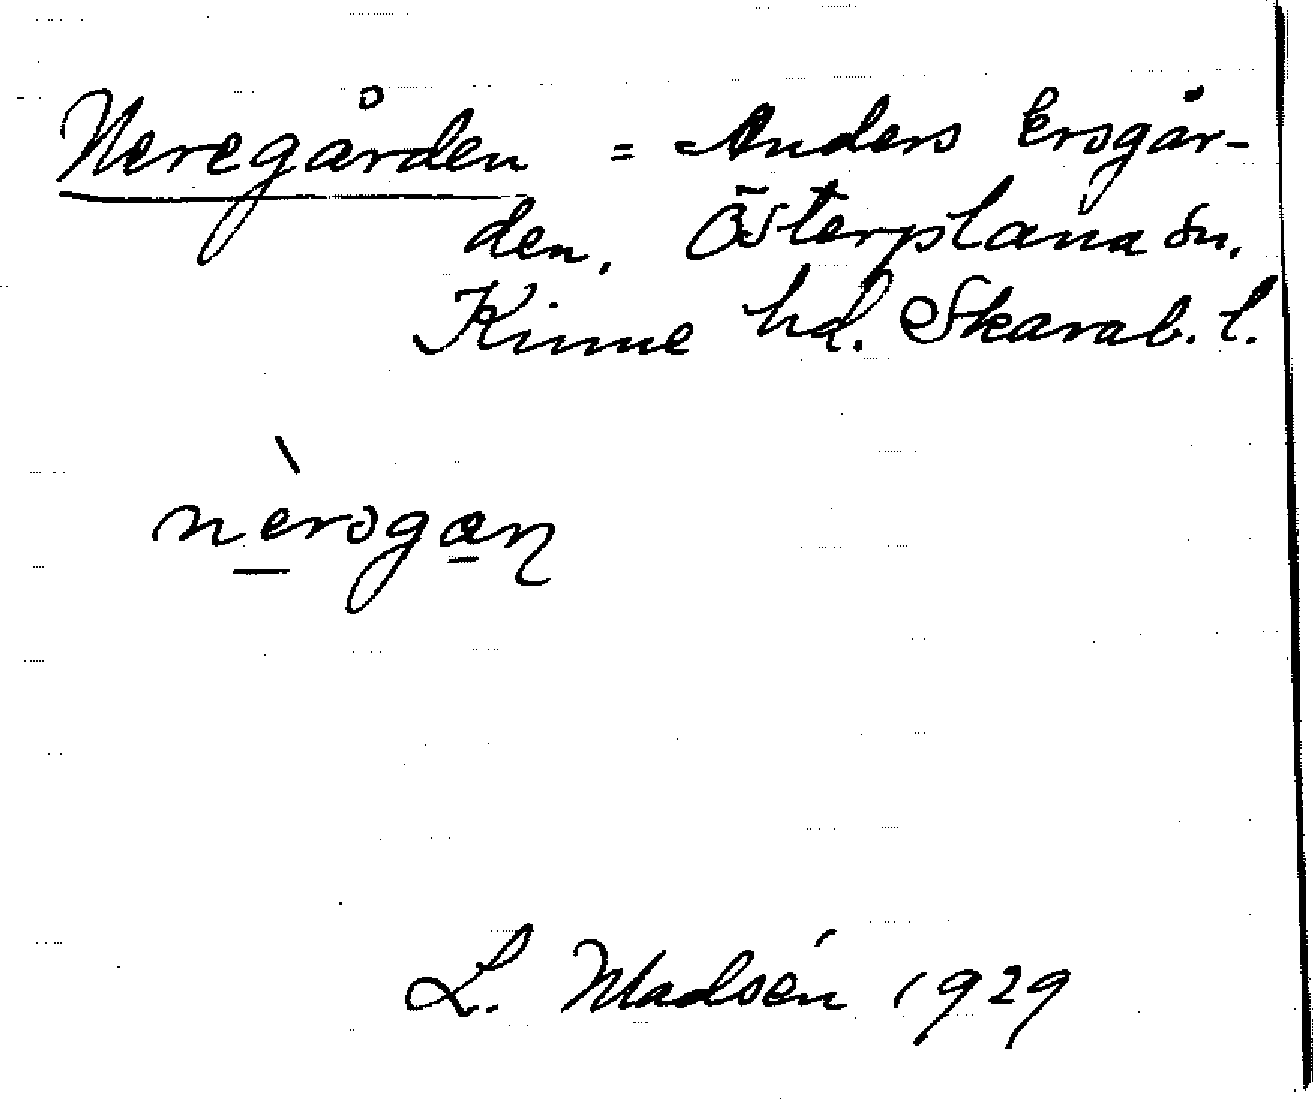 Neregården = Anders Ersgår-
den, Österplana sn.
Kinne hd. Skarab. l.
nèrogan
L. Madsén 1929